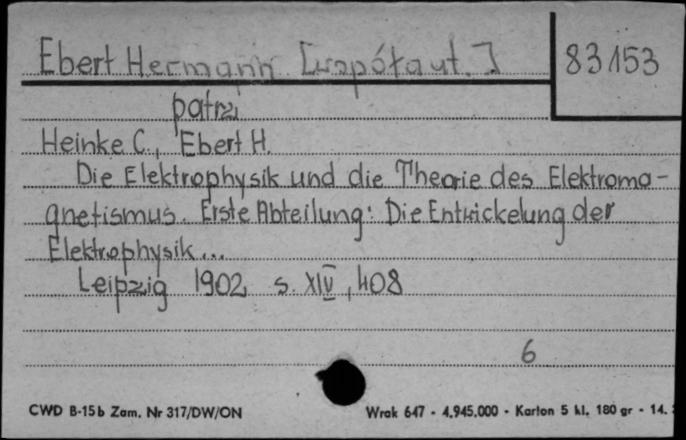 Ebert Hermann [współaut.] 83153
patrz
Heinke C., Ebert H.
Die Elektrophysik und die Theorie des Elektroma-
gnetismus. Erste Abteilung: Die Entwickelung der
Elektrophysik...
Leipzig 1902, s. XIV, 408
6
CWD B-15b Zam. Nr 317/DW/ON Wrak 647 - 4.945.000 - Karton 5 kl. 180 gr - 14.